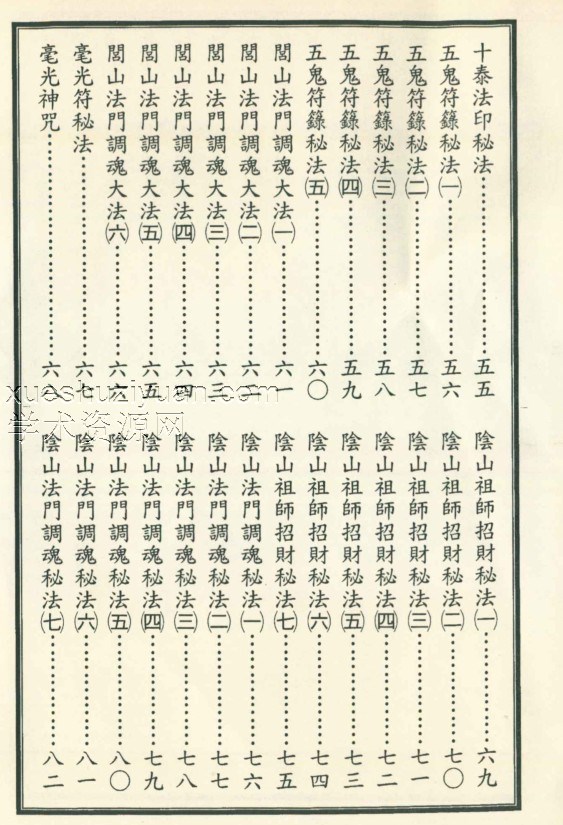 十泰法印秘法……五五
五鬼符籙秘法㈠……五六
五鬼符籙秘法㈡……五七
五鬼符籙秘法㈢……五八
五鬼符籙秘法㈣……五九
五鬼符籙秘法㈤……六〇
閭山法門調魂大法㈠……六一
閭山法門調魂大法㈡……六二
閭山法門調魂大法㈢……六三
閭山法門調魂大法㈣……六四
閭山法門調魂大法㈤……六五
閭山法門調魂大法㈥……六六
毫光符秘法……六七
毫光神咒……六八
陰山祖師招財秘法㈠……六九
陰山祖師招財秘法㈡……七〇
陰山祖師招財秘法㈢……七一
陰山祖師招財秘法㈣……七二
陰山祖師招財秘法㈤……七三
陰山祖師招財秘法㈥……七四
陰山祖師招財秘法㈦……七五
陰山法門調魂秘法㈠……七六
陰山法門調魂秘法㈡……七七
陰山法門調魂秘法㈢……七八
陰山法門調魂秘法㈣……七九
陰山法門調魂秘法㈤……八〇
陰山法門調魂秘法㈥……八一
陰山法門調魂秘法㈦……八二
xueshuziyuan.com
学术资源网